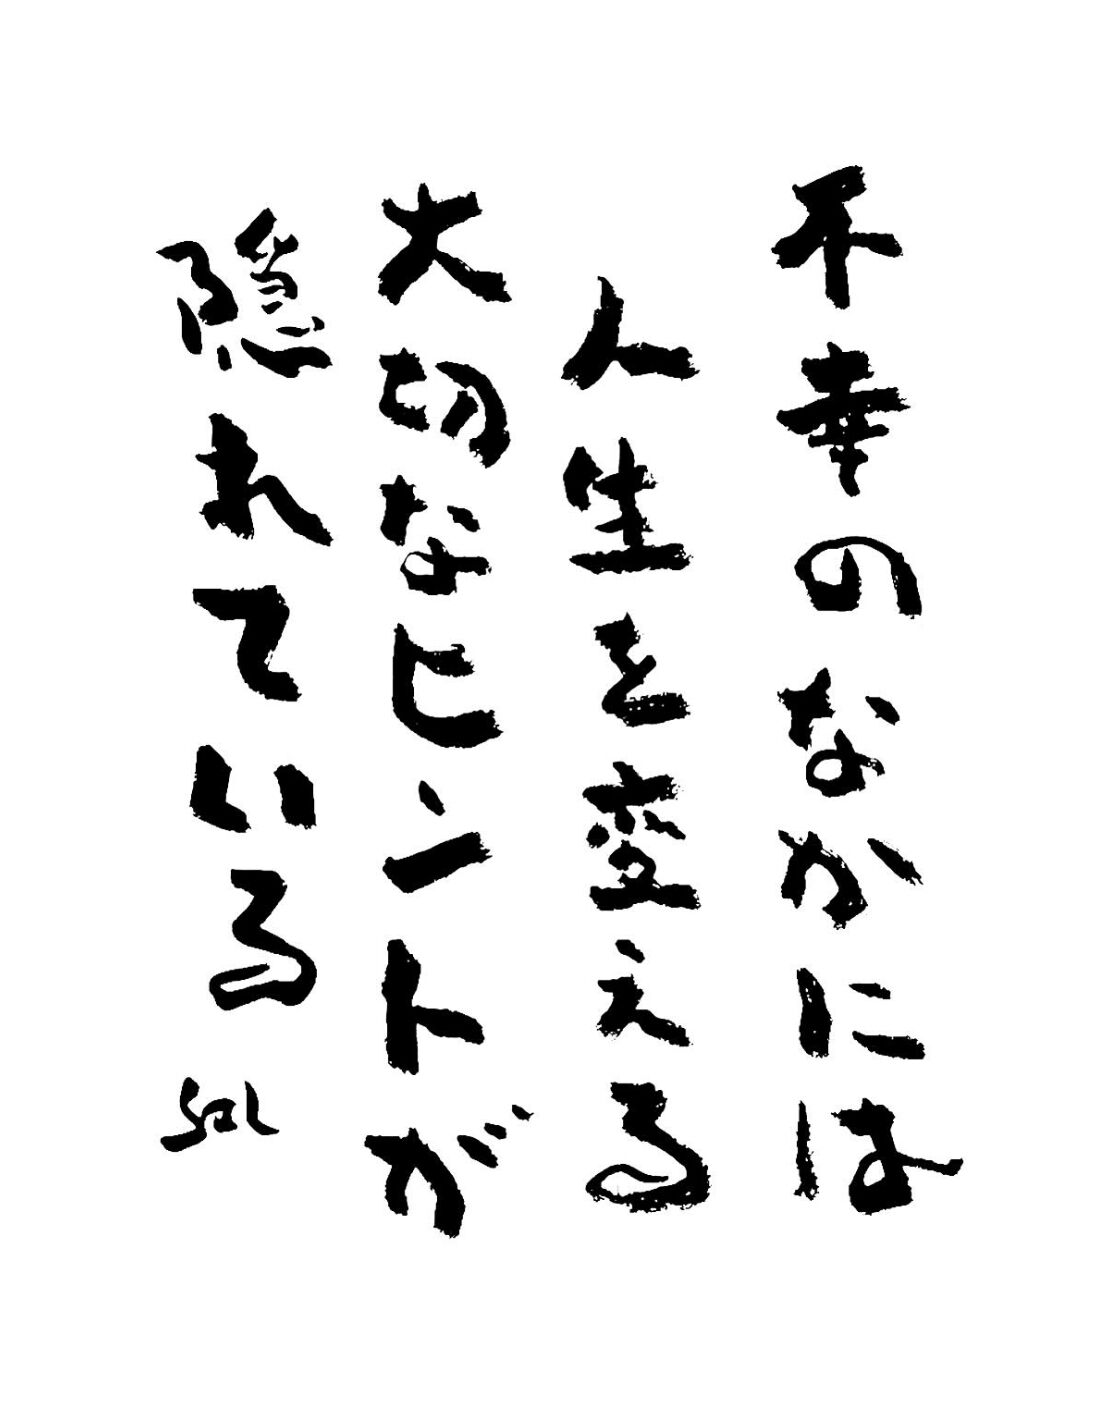 不幸のなかには
人生を変える
大切なヒントが
隠れている